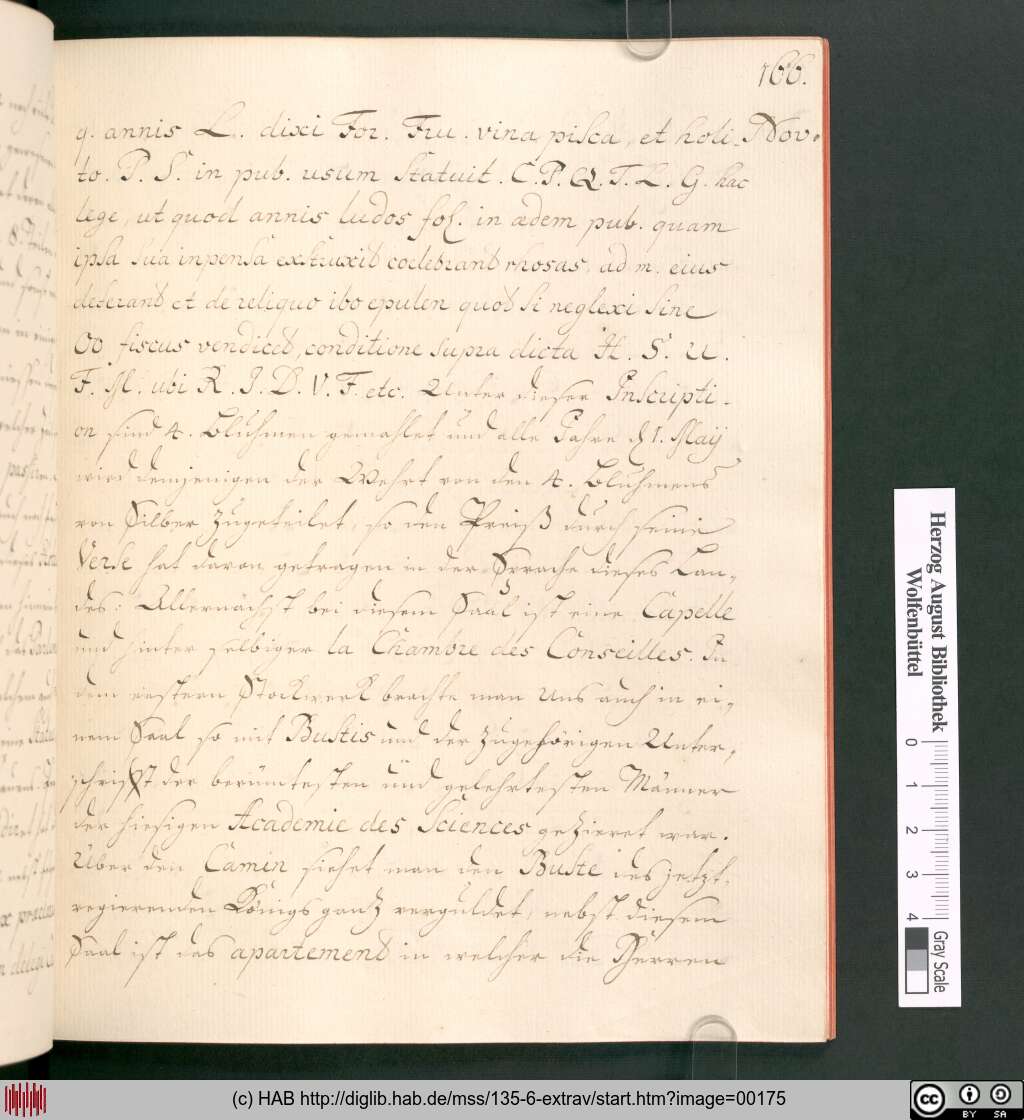 166.
q. annis L. dixi For. Fru. vina pisca, et holi- Nov.
to. P. S. in pub. usum statuit. C. P. Q. T. L. G. hac
lege, ut quod annis ludos fol. in ædem pub. quam
ipsa sua inpensa extruxit coelebrant rhosas, ad m. eius
deferant et de reliquo ibo epulen quot si neglexi sine
OD fiscus vendicet, conditione supra dicta H. S. U.
F. M. ubi R. I. D. V. F. etc. Unter dieser Inscripti-
on sind 4. Bluhmen gemahlet und alle Jahre d. 1. Maij
wird demjenigen der Wehrt von den 4. Bluhmens
von Silber zugeteilet, so den Preiß durch seine
Verse hat davon getragen in der Sprache dieses Lan-
des: Allernächst bei diesem Saal ist eine Capelle
und hinter selbiger la Chambre des Conseilles. In
dem erstern Stockwerk brachte man uns auch in ei-
nem Saal so mit Bustis und der zugehörigen Unter-
schrift der berümtesten und gelehrtesten Männer
der hiesigen Academie des Sciences gezieret war.
Über den Camin siehet man den Buste des jetzt-
regierenden Königs gantz verguldet, nebst diesem
Saal ist das apartement in welcher die Herren
Herzog August Bibliothek
Wolfenbüttel
0 1 2 3 4
Gray Scale
(c) HAB http://diglib.hab.de/mss/135-6-extrav/start.htm?image=00175
cc BY SA